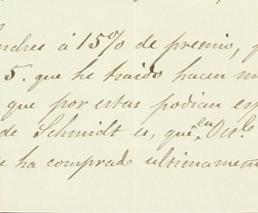 ndres á 15% de premio, q
5. que he traido hacen un
que por estas podian es
de Schmidt es, que en Oct.
e ha comprado ultimamen